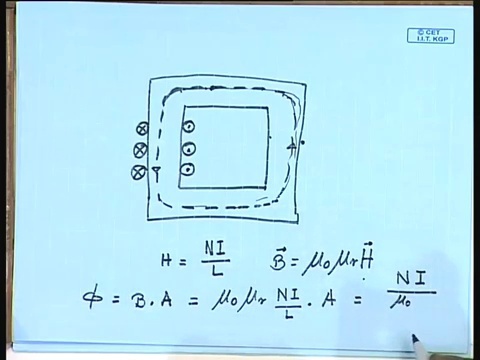 © CET
I.I.T. KGP
H = NI/L    B⃗ = μ₀μᵣH⃗
ϕ = B.A = μ₀μᵣ NI/L . A = NI/μ₀